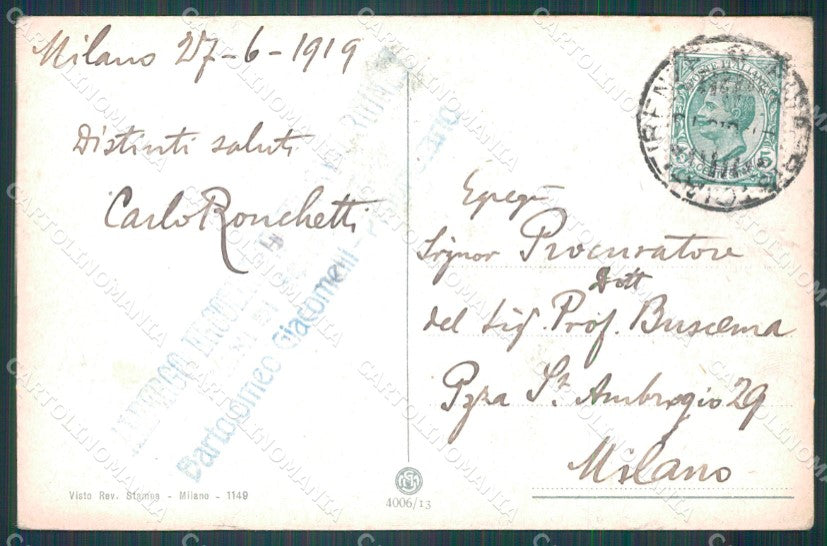 Milano 27-6-1919
Distinti saluti
Carlo Ronchetti
ALBERGO
Bartolomeo Giacomelli
POSTE ITALIANE
Egreg
Signor Procuratore
Dott
del Sig. Prof. Buscema
Pzza St. Ambrogio 29
Milano
Visto Rev. Stampa - Milano - 1149
4006/13
CARTOLINOMANIA